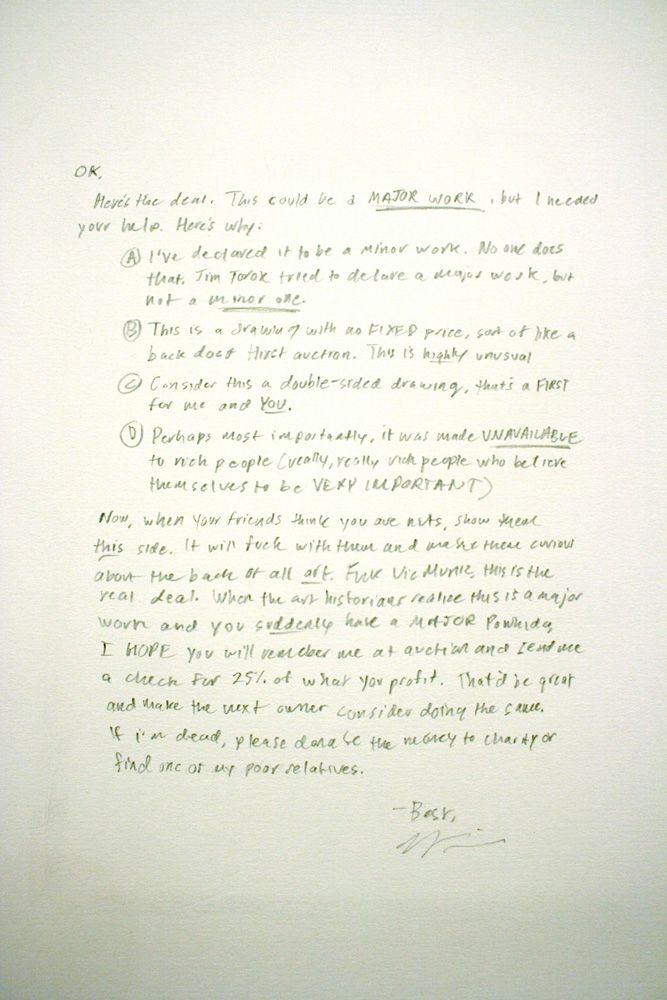 OK,
Here's the deal. This could be a MAJOR WORK, but I need
your help. Here's why:
A I've declared it to be a minor work. No one does
that. Jim Torok tried to delare a major work, but
not a minor one.
B This is a drawing with no FIXED price, sort of like a
back door Hirst auction. This is highly unusual
C Consider this a double-sided drawing, that's a FIRST
for me and YOU.
D Perhaps most importantly, it was made UNAVAILABLE
to rich people (really, really rich people who believe
themselves to be VERY IMPORTANT)
Now, when your friends think you are nuts, show them
this side. It will fuck with them and make them curious
about the back of all art. Fuck Vic Muniz, this is the
real deal. When the art historians realize this is a major
work and you suddenly have a MAJOR Powhida,
I HOPE you will remember me at auction and send me
a check for 25% of what you profit. That'd be great
and make the next owner consider doing the same.
If i'm dead, please donate the money to charity or
find one of my poor relatives.
–Best,